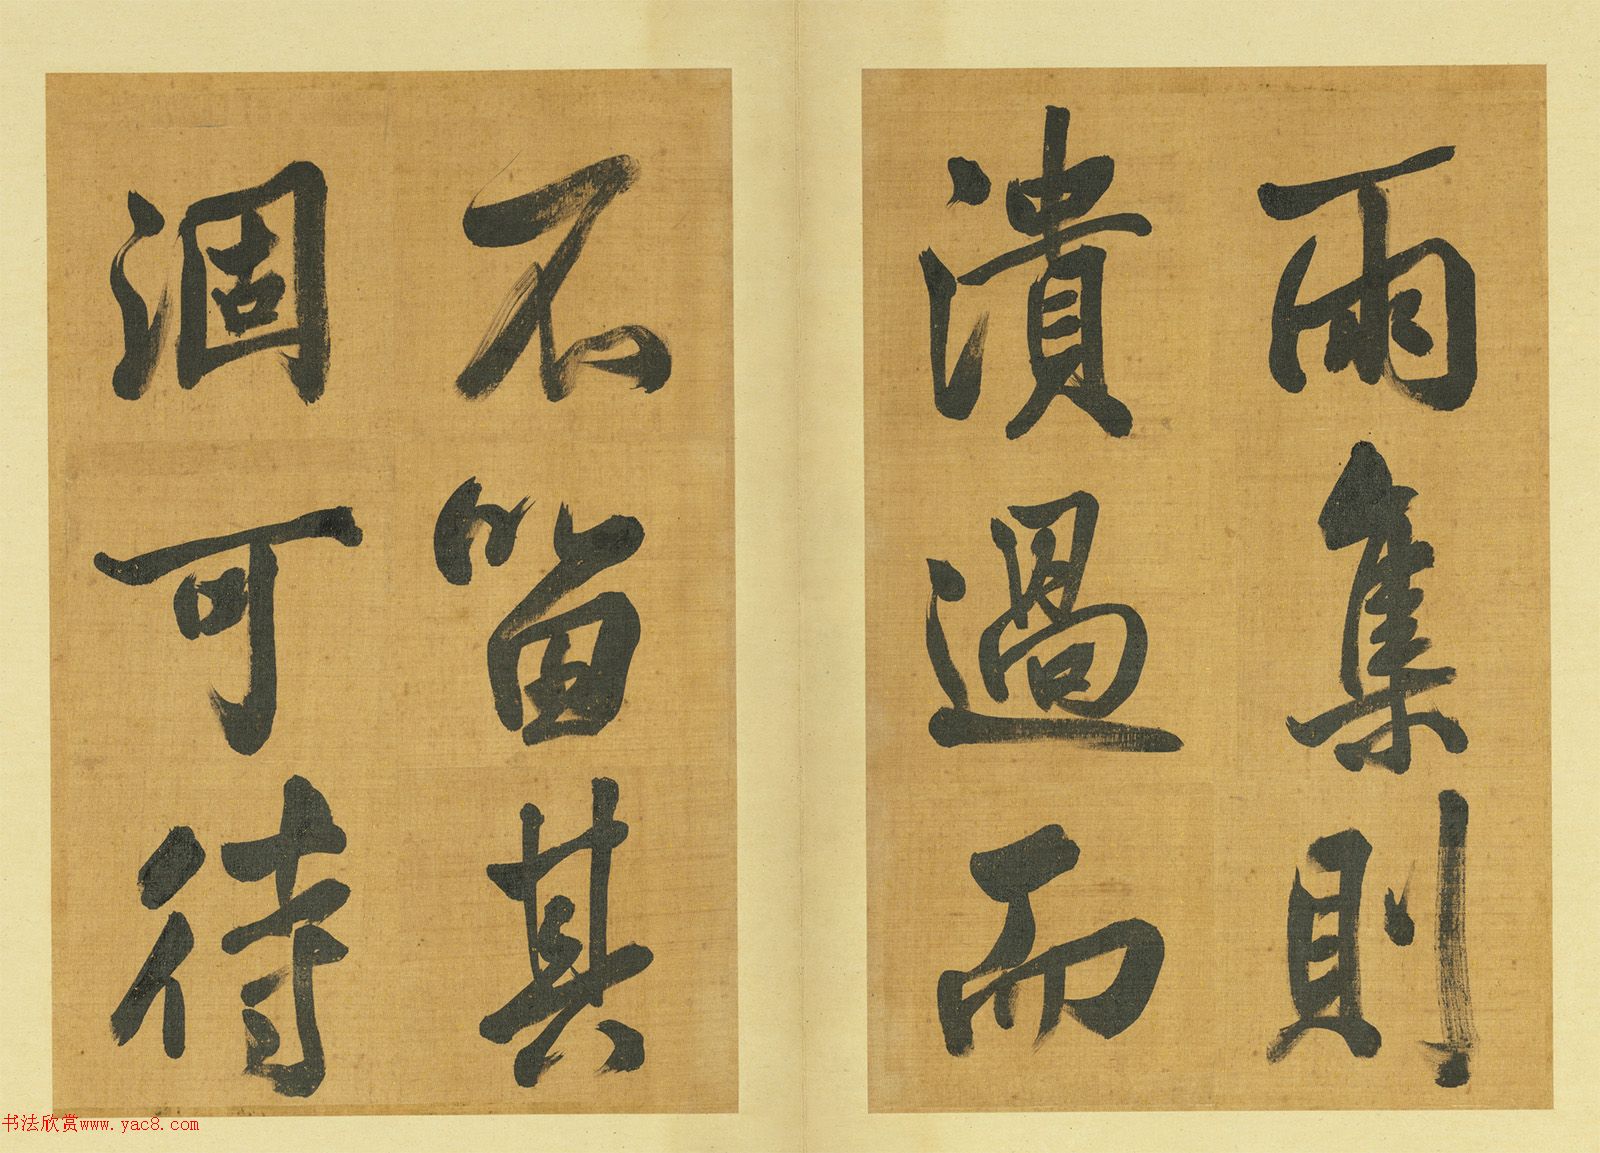 雨集則
潰過而
不留其
涸可待
书法欣赏www.yac8.com